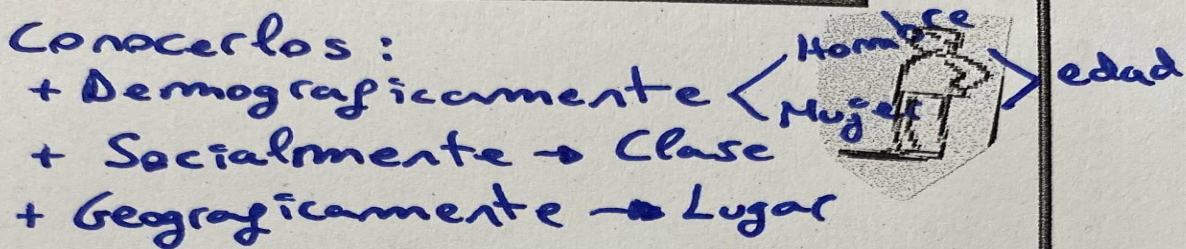 Conocerlos :
+ Demograficamente < Hombre Mujer > edad
+ Socialmente → Clase
+ Geograficamente → Lugar